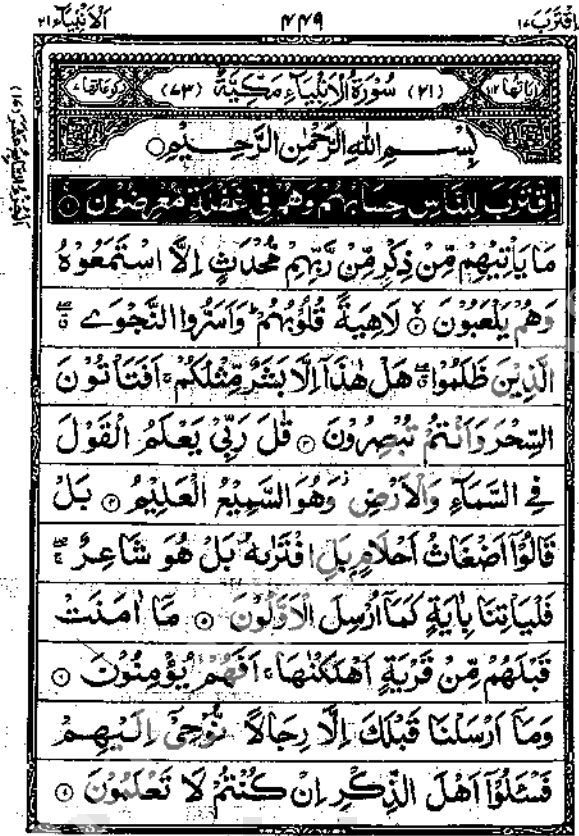 اِقْتَرَبَ ١٧
٤٤٩
اَلْاَنْۢبِيَآء ٢١
اٰيَاتُهَا ١١٢
(٢١) سُوْرَةُ الْاَنْۢبِيَآءِ مَكِّيَّةٌ (٧٣)
رُكُوْعَاتُهَا ٧
بِسْمِ اللهِ الرَّحْمٰنِ الرَّحِيْمِ
اِقْتَرَبَ لِلنَّاسِ حِسَابُهُمْ وَهُمْ فِيْ غَفْلَةٍ مُّعْرِضُوْنَ ١
مَا يَاْتِيْهِمْ مِّنْ ذِكْرٍ مِّنْ رَّبِّهِمْ مُّحْدَثٍ اِلَّا اسْتَمَعُوْهُ
وَهُمْ يَلْعَبُوْنَ ٢ لَاهِيَةً قُلُوْبُهُمْ ؕ وَاَسَرُّوا النَّجْوَى
الَّذِيْنَ ظَلَمُوْا هَلْ هٰذَآ اِلَّا بَشَرٌ مِّثْلُكُمْ ۚ اَفَتَاْتُوْنَ
السِّحْرَ وَاَنْتُمْ تُبْصِرُوْنَ ٣ قٰلَ رَبِّيْ يَعْلَمُ الْقَوْلَ
فِي السَّمَآءِ وَالْاَرْضِ ؗ وَهُوَ السَّمِيْعُ الْعَلِيْمُ ٤ بَلْ
قَالُوْٓا اَضْغَاثُ اَحْلَامٍۭ بَلِ افْتَرٰىهُ بَلْ هُوَ شَاعِرٌ
فَلْيَاْتِنَا بِاٰيَةٍ كَمَآ اُرْسِلَ الْاَوَّلُوْنَ ٥ مَآ اٰمَنَتْ
قَبْلَهُمْ مِّنْ قَرْيَةٍ اَهْلَكْنٰهَا ۚ اَفَهُمْ يُؤْمِنُوْنَ ٦
وَمَآ اَرْسَلْنَا قَبْلَكَ اِلَّا رِجَالًا نُّوْحِيْٓ اِلَيْهِمْ
فَسْـَٔلُوْٓا اَهْلَ الذِّكْرِ اِنْ كُنْتُمْ لَا تَعْلَمُوْنَ ٧